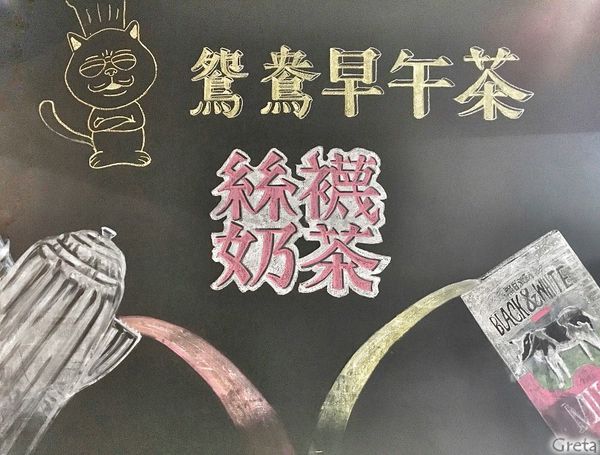 鴛鴦早午茶
絲襪
奶茶
BLACK&WHITE
MI
Greta